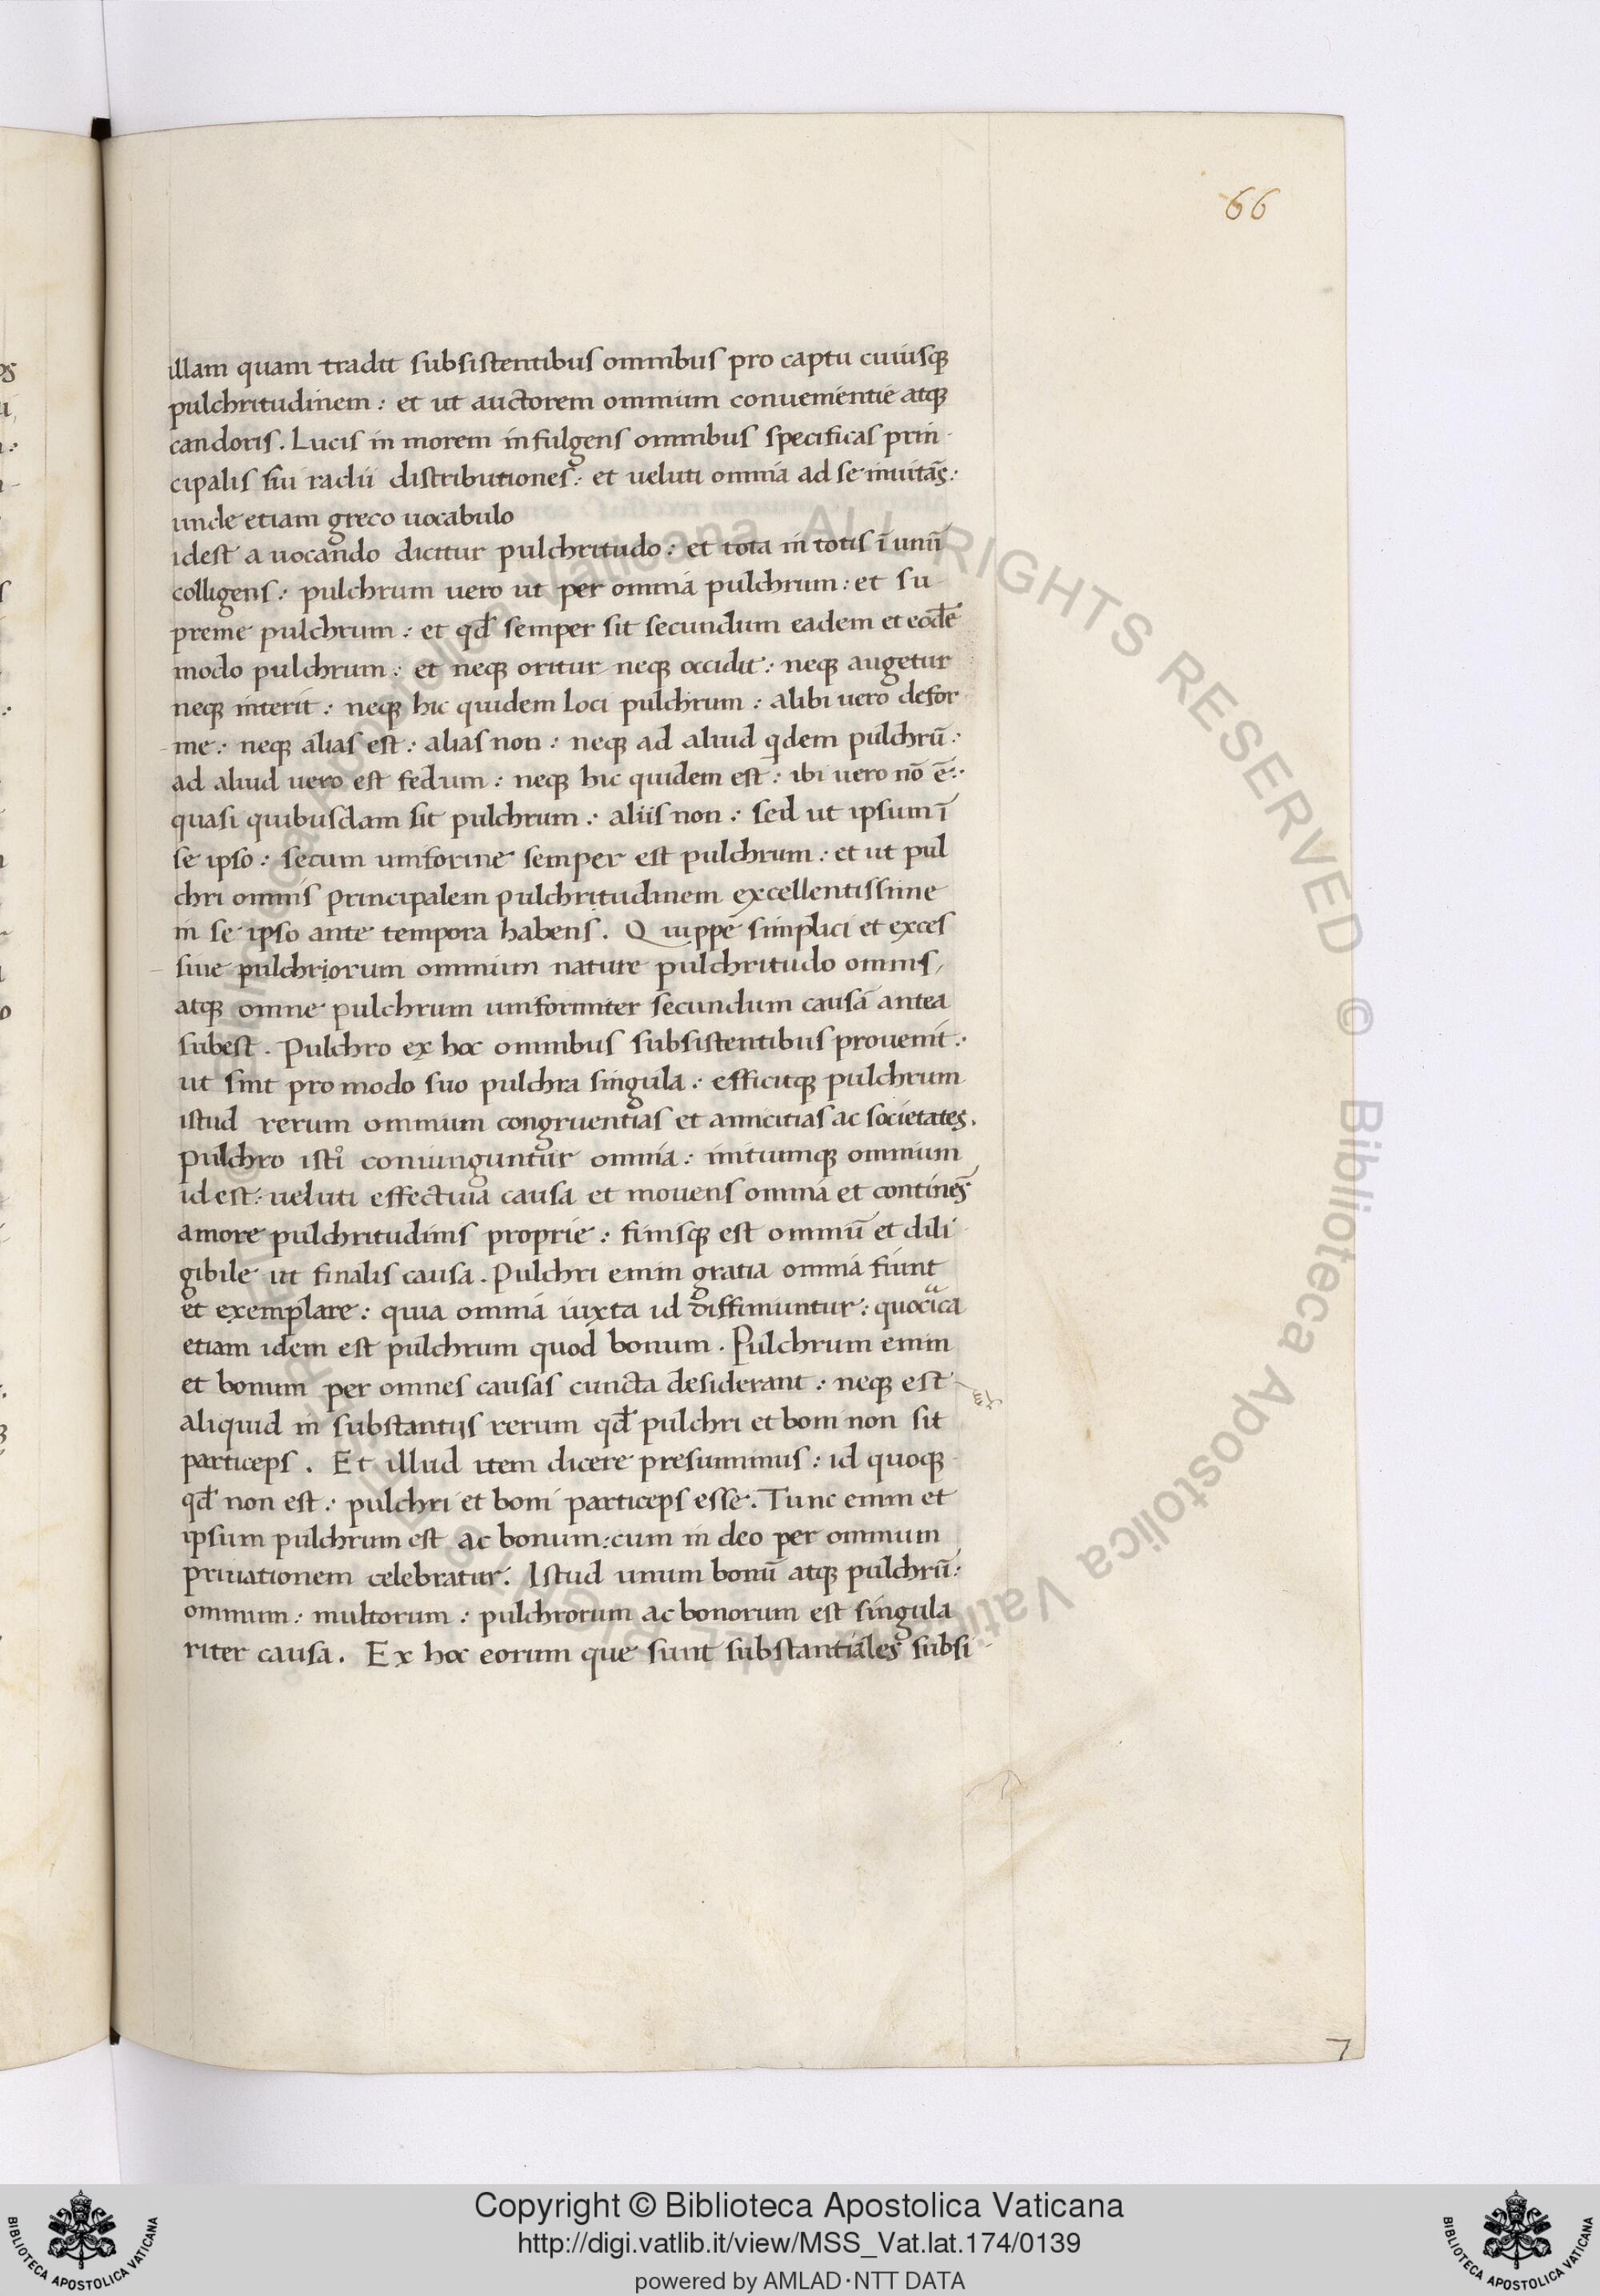 66
illam quam tradit subsistentibus omnibus pro captu cuiusq
pulchritudinem : et ut auctorem omnium convenientie atq
candoris . Lucis in morem infulgens omnibus specificas prin-
cipalis sui radii distributiones : et veluti omnia ad se invitãs :
unde etiam greco vocabulo
idest a vocando dicitur pulchritudo : et tota in totis ĩ unũ
colligens : pulchrum vero ut per omnia pulchrum : et su-
preme pulchrum : et qđ semper sit secundum eadem et eodẽ
modo pulchrum : et neq oritur neq occidit : neq augetur
neq interit : neq hic quidem loci pulchrum : alibi vero defor
me : neq alias est : alias non : neq ad aliud qdem pulchrũ :
ad aliud vero est fedum : neq hic quidem est : ibi vero nõ ẽ :
quasi quibusdam sit pulchrum : aliis non : sed ut ipsum ĩ
se ipso : secum uniforme semper est pulchrum : et ut pul
chri omnis principalem pulchritudinem excellentissime
in se ipso ante tempora habens . Quippe simplici et exces
sive pulchriorum omnium nature pulchritudo omnis,
atq omne pulchrum uniformiter secundum causã antea
subest . Pulchro ex hoc omnibus subsistentibus provenit :
ut sint pro modo suo pulchra singula : efficitq pulchrum
istud rerum omnium congruentias et amicitias ac societates .
Pulchro isti coniunguntur omnia : initiumq omnium
id est : veluti effectiva causa et movens omnia et continẽs
amore pulchritudinis proprie : finisq est omniũ et dili
gibile ut finalis causa . Pulchri enim gratia omnia fiunt
et exemplare : quia omnia iuxta id diffiniuntur : quocica
etiam idem est pulchrum quod bonum . Pulchrum enim
et bonum per omnes causas cuncta desiderant : neq est
aliquid in substantiis rerum qđ pulchri et boni non sit
particeps . Et illud item dicere presumimus : id quoq
qđ non est : pulchri et boni particeps esse . Tunc enim et
ipsum pulchrum est ac bonum : cum in deo per omnium
privationem celebratur . Istud unum bonũ atq pulchrũ :
omnium : multorum : pulchrorum ac bonorum est singula
riter causa . Ex hoc eorum que sunt substantiales subsi-
7
© Biblioteca Apostolica Vaticana ALL RIGHTS RESERVED
Copyright © Biblioteca Apostolica Vaticana
http://digi.vatlib.it/view/MSS_Vat.lat.174/0139
powered by AMLAD·NTT DATA
BIBLIOTECA APOSTOLICA VATICANA
BIBLIOTECA APOSTOLICA VATICANA